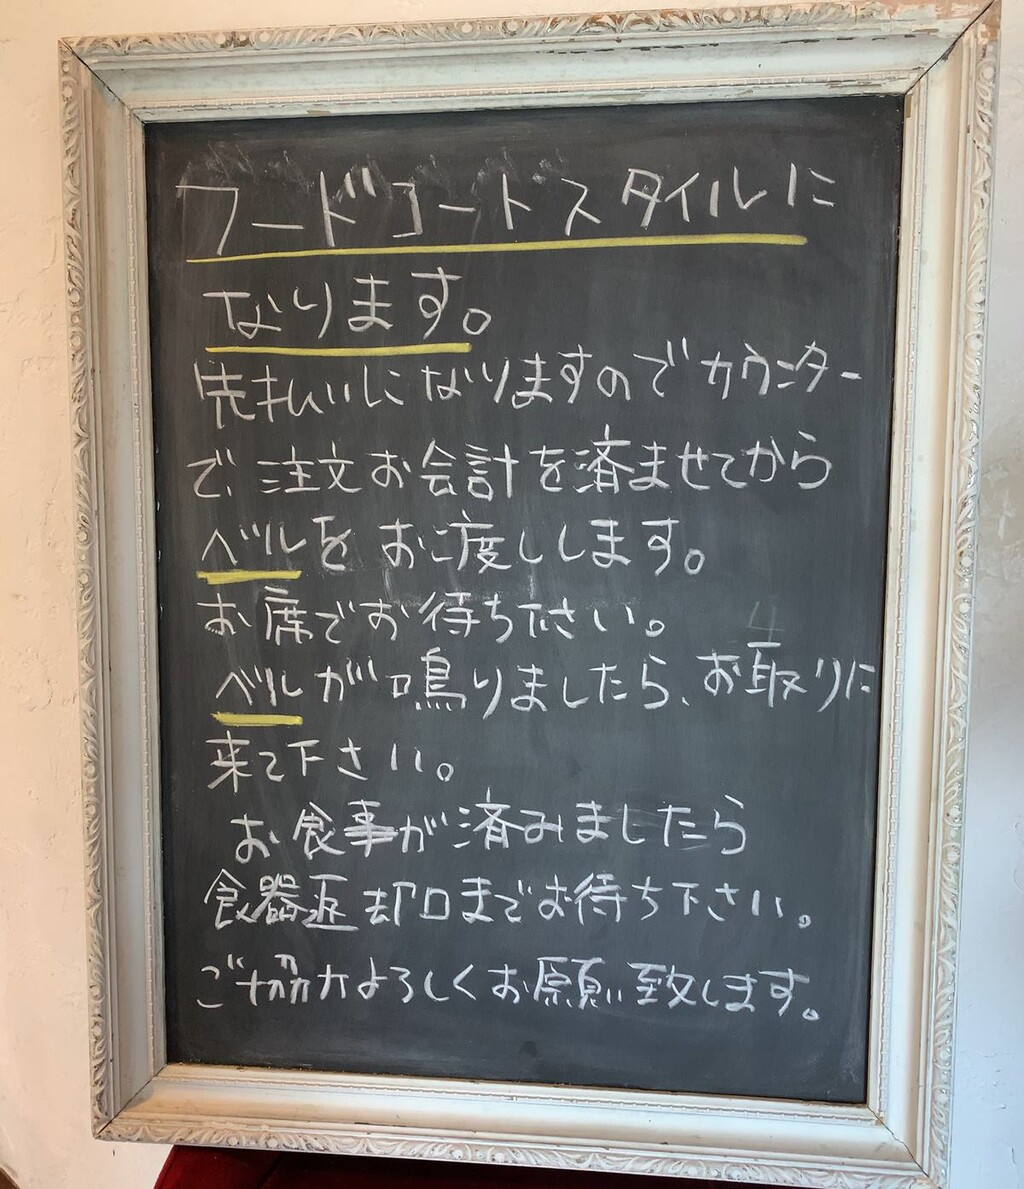 フードコートスタイルに
なります。
先払いになりますのでカウンター
で、注文お会計を済ませてから
ベルをお渡しします。
お席でお待ち下さい。
ベルが鳴りましたら、お取りに
来て下さい。
お食事が済みましたら
食器返却口までお待ち下さい。
ご協力よろしくお願い致します。